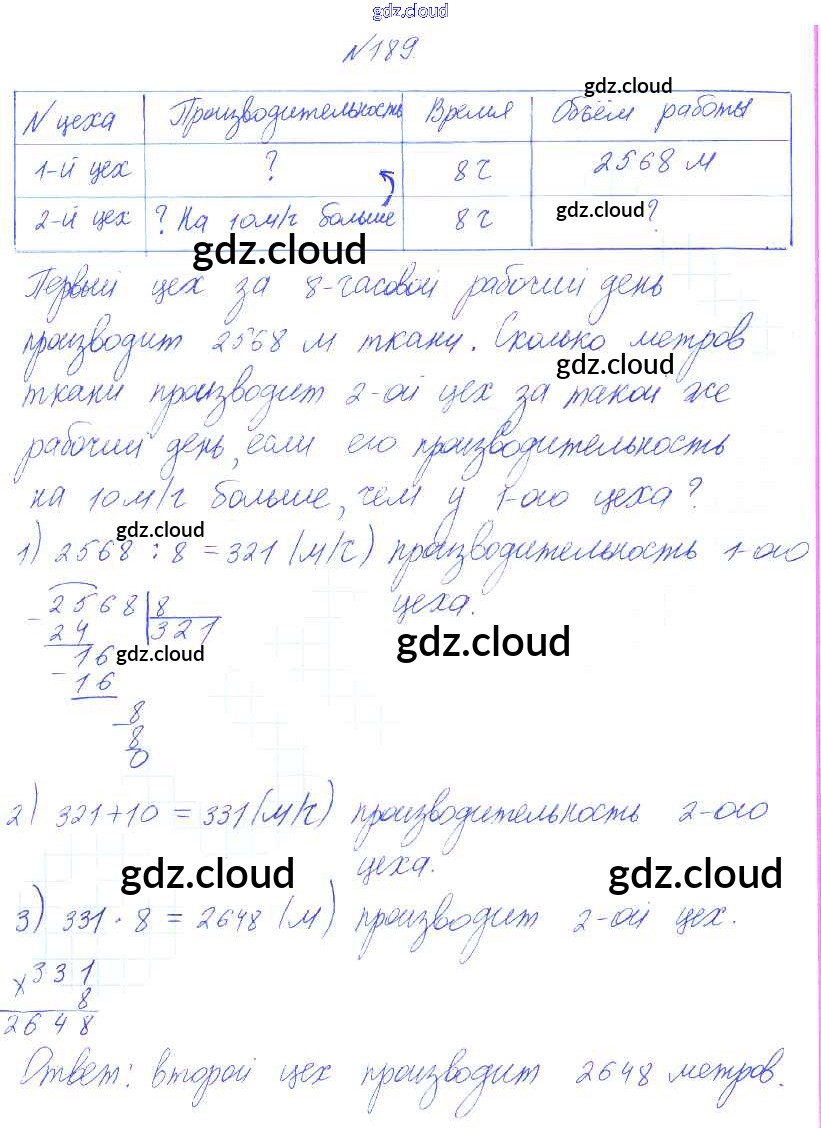 gdz.cloud
N189.
gdz.cloud
N цеха Производительность Время Объём работы
1-й цех ? 8 ч 2568 м
2-й цех ? На 10 м/ч больше 8 ч gdz.cloud ?
gdz.cloud
Первый цех за 8-часовой рабочий день
производит 2568 м ткани. Сколько метров
gdz.cloud
ткани производит 2-ой цех за такой же
рабочий день, если его производительность
на 10 м/ч больше, чем у 1-ого цеха?
gdz.cloud
1) 2568 : 8 = 321 (м/ч) производительность 1-ого
цеха.
2568 8
24 321
gdz.cloud
gdz.cloud
16
16
8
8
0
2) 321+10 = 331 (м/ч) производительность 2-ого
цеха.
gdz.cloud gdz.cloud
3) 331 · 8 = 2648 (м) производит 2-ой цех.
×331
8
2648
Ответ: второй цех производит 2648 метров.